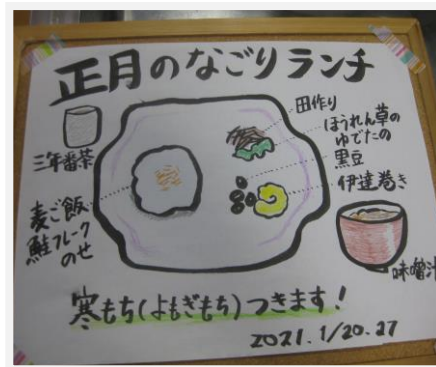 正月のなごりランチ
三年番茶
田作り
ほうれん草の
ゆでたの
黒豆
伊達巻き
麦ご飯
鮭フレーク
のせ
味噌汁
寒もち(よもぎもち)つきます!
2021.1/20.27